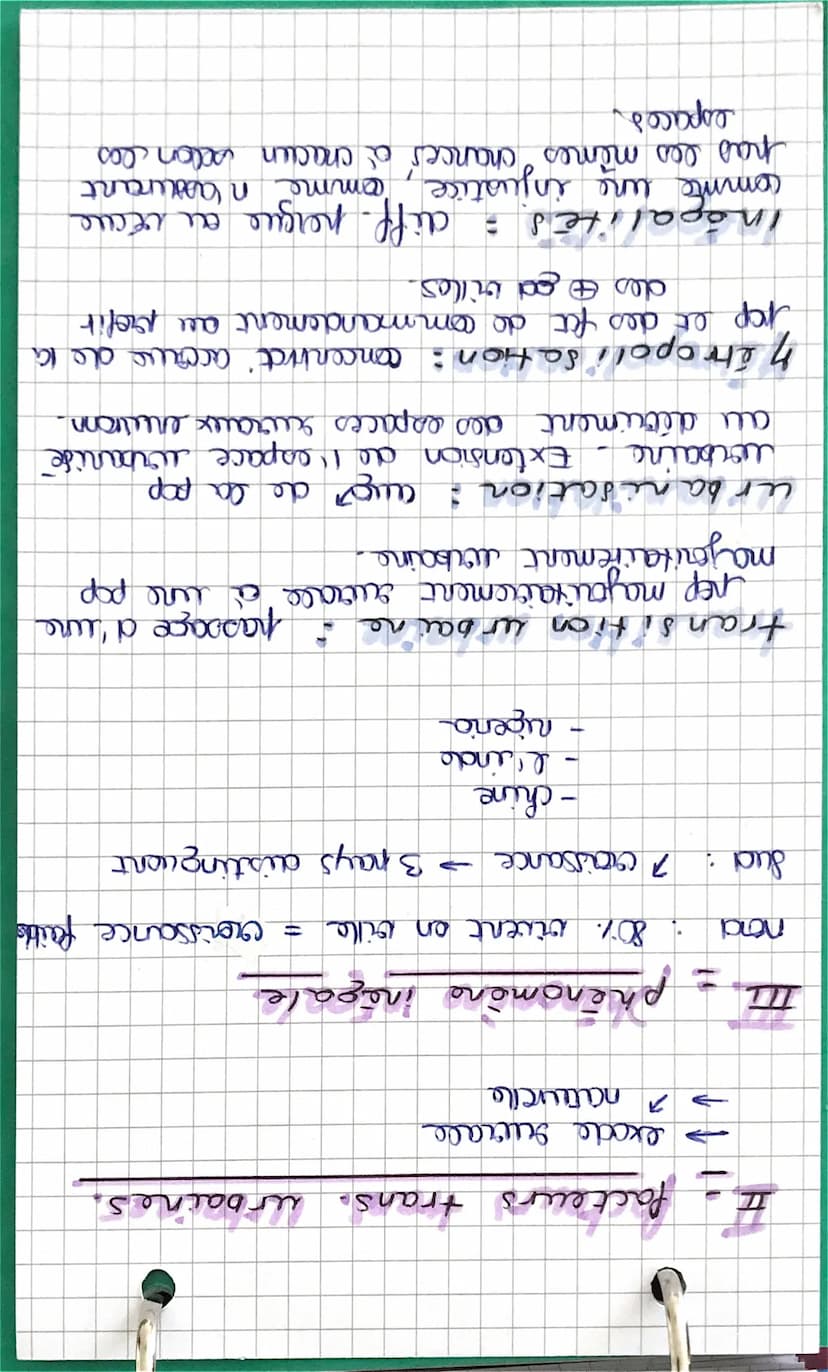 II - facteurs trans. urbaines.
→ exode rurale
→ ↗ naturelle
III - phénomène inégale
nord : 80% vivent en ville = croissance faible
Sud : ↗ croissance → 3 pays distinguent
- chine
- l'inde
- nigeria
transition urbaine : passage d'une
pop majoritairement rurale à une pop
majoritairement urbaine.
urbanisation : aug↗ de la pop
urbaine - Extension de l'espace urbanisé
au détriment des espaces ruraux environn.
Métropolisation : concentrat° accrue de la
pop et des fct de commandement au profit
des ⊕ gd villes.
Inégalités : diff. perçue au vécue
comme une injustice, comme n'assurant
pas les mêmes chances à chacun selon les
espaces.